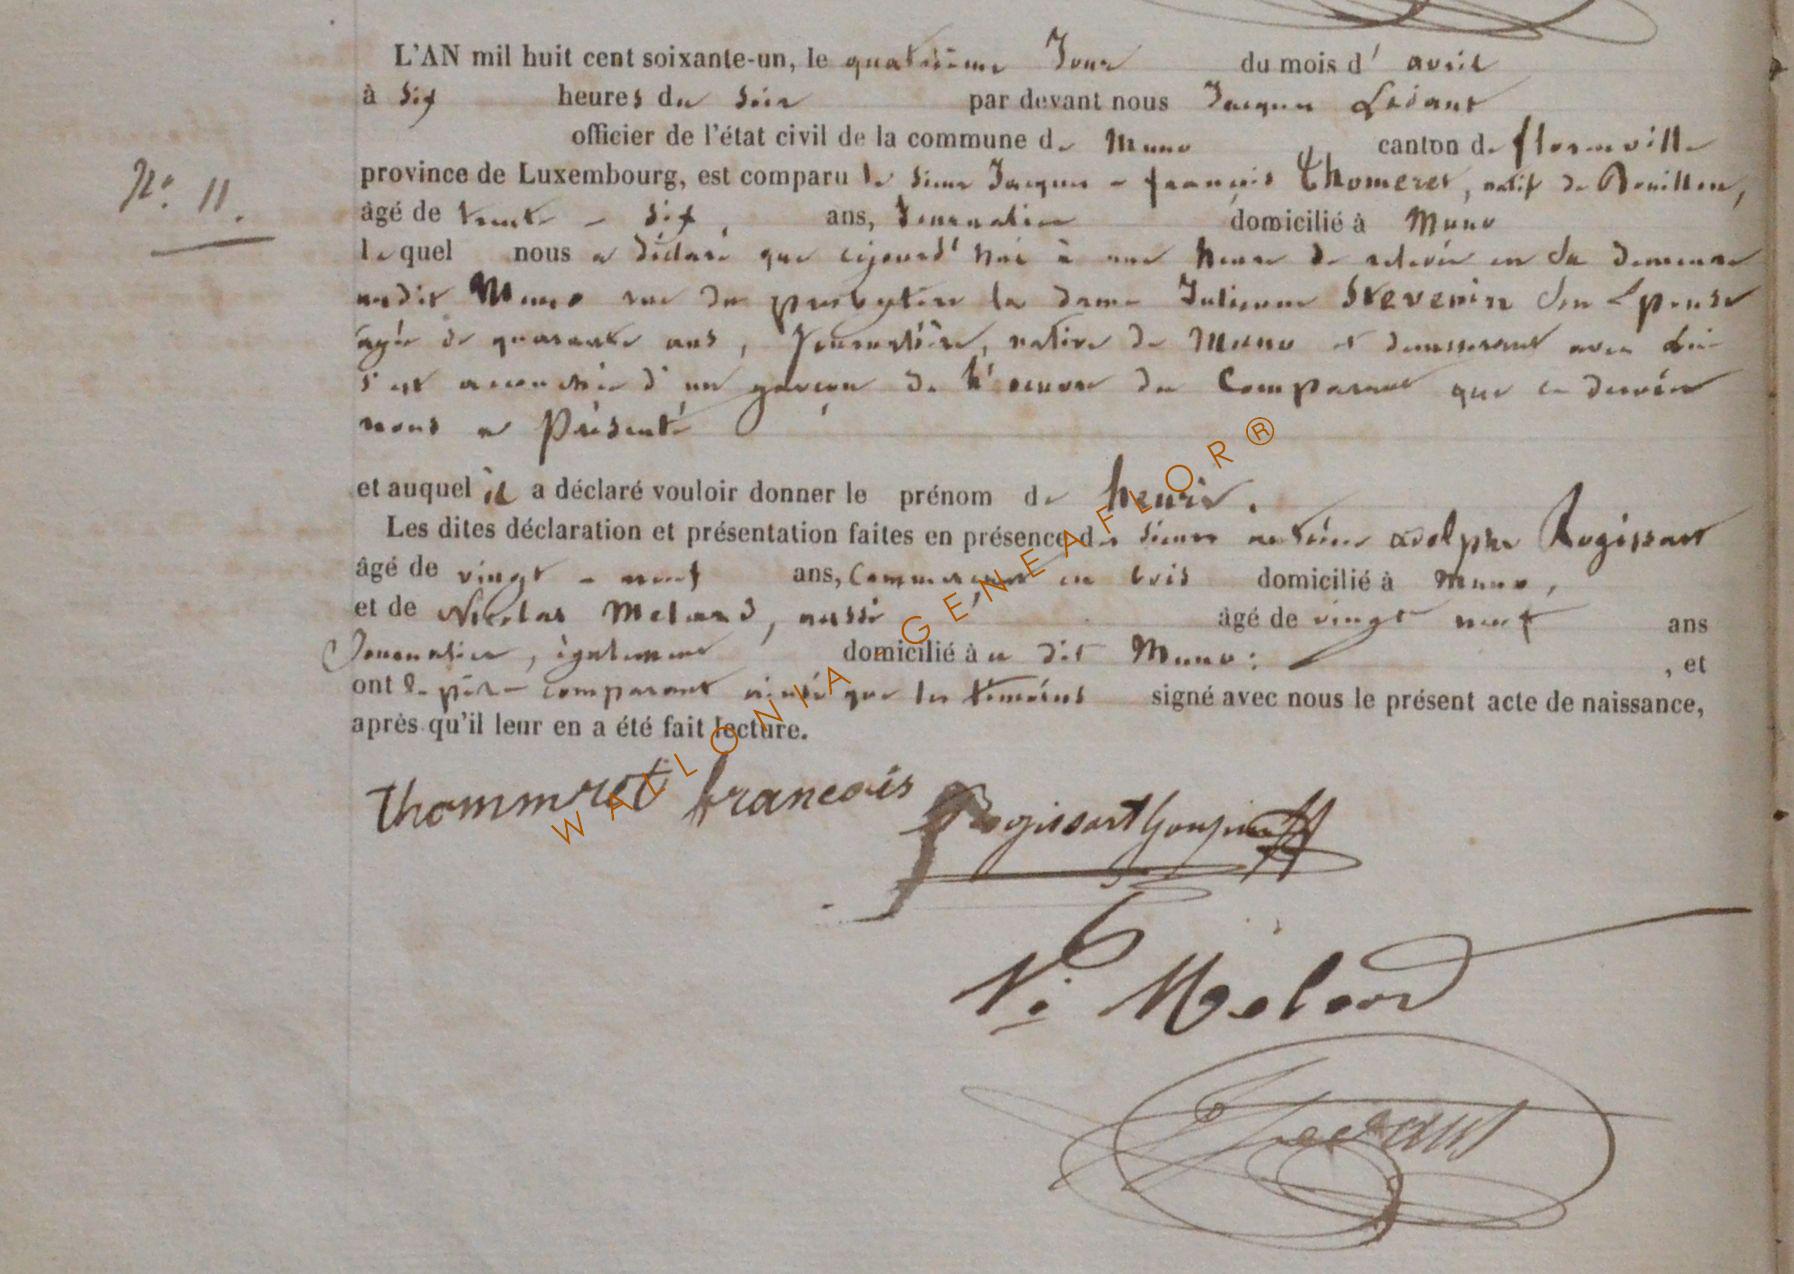 L'AN mil huit cent soixante-un, le quatrième Jour du mois d' avril
à six heures du soir par devant nous Jacques
officier de l'état civil de la commune de Muno canton de florenville
N.° 11.
province de Luxembourg, est comparu le sieur Jacques - françois Thomeret, natif de Bouillon,
âgé de trente - six, ans, Journalier domicilié à Muno
lequel nous a déclaré que cejourd'hui à une heure de relevée en sa demeure
audit Muno rue du presbytère la dame Julienne Stevenin son Epouse
agée de quarante ans, Journalière, native de Muno et demeurant avec lui
s'est accouchée d'un garçon de l'oeuvre du Comparant que ce dernier
nous a Présenté
et auquel il a déclaré vouloir donner le prénom de henri.
Les dites déclaration et présentation faites en présence de sieurs antoine adolphe Rogissart
âgé de vingt - neuf ans, Commerçant en bois domicilié à Muno,
et de Nicolas Meland, aussi âgé de vingt neuf ans
Journalier, également domicilié à u dit Muno: , et
ont le père comparant ainsi que les témoins signé avec nous le présent acte de naissance,
après qu'il leur en a été fait lecture.
WALLONIA GENEAFLOR®
thommret francois
Rogissart
N. Meland